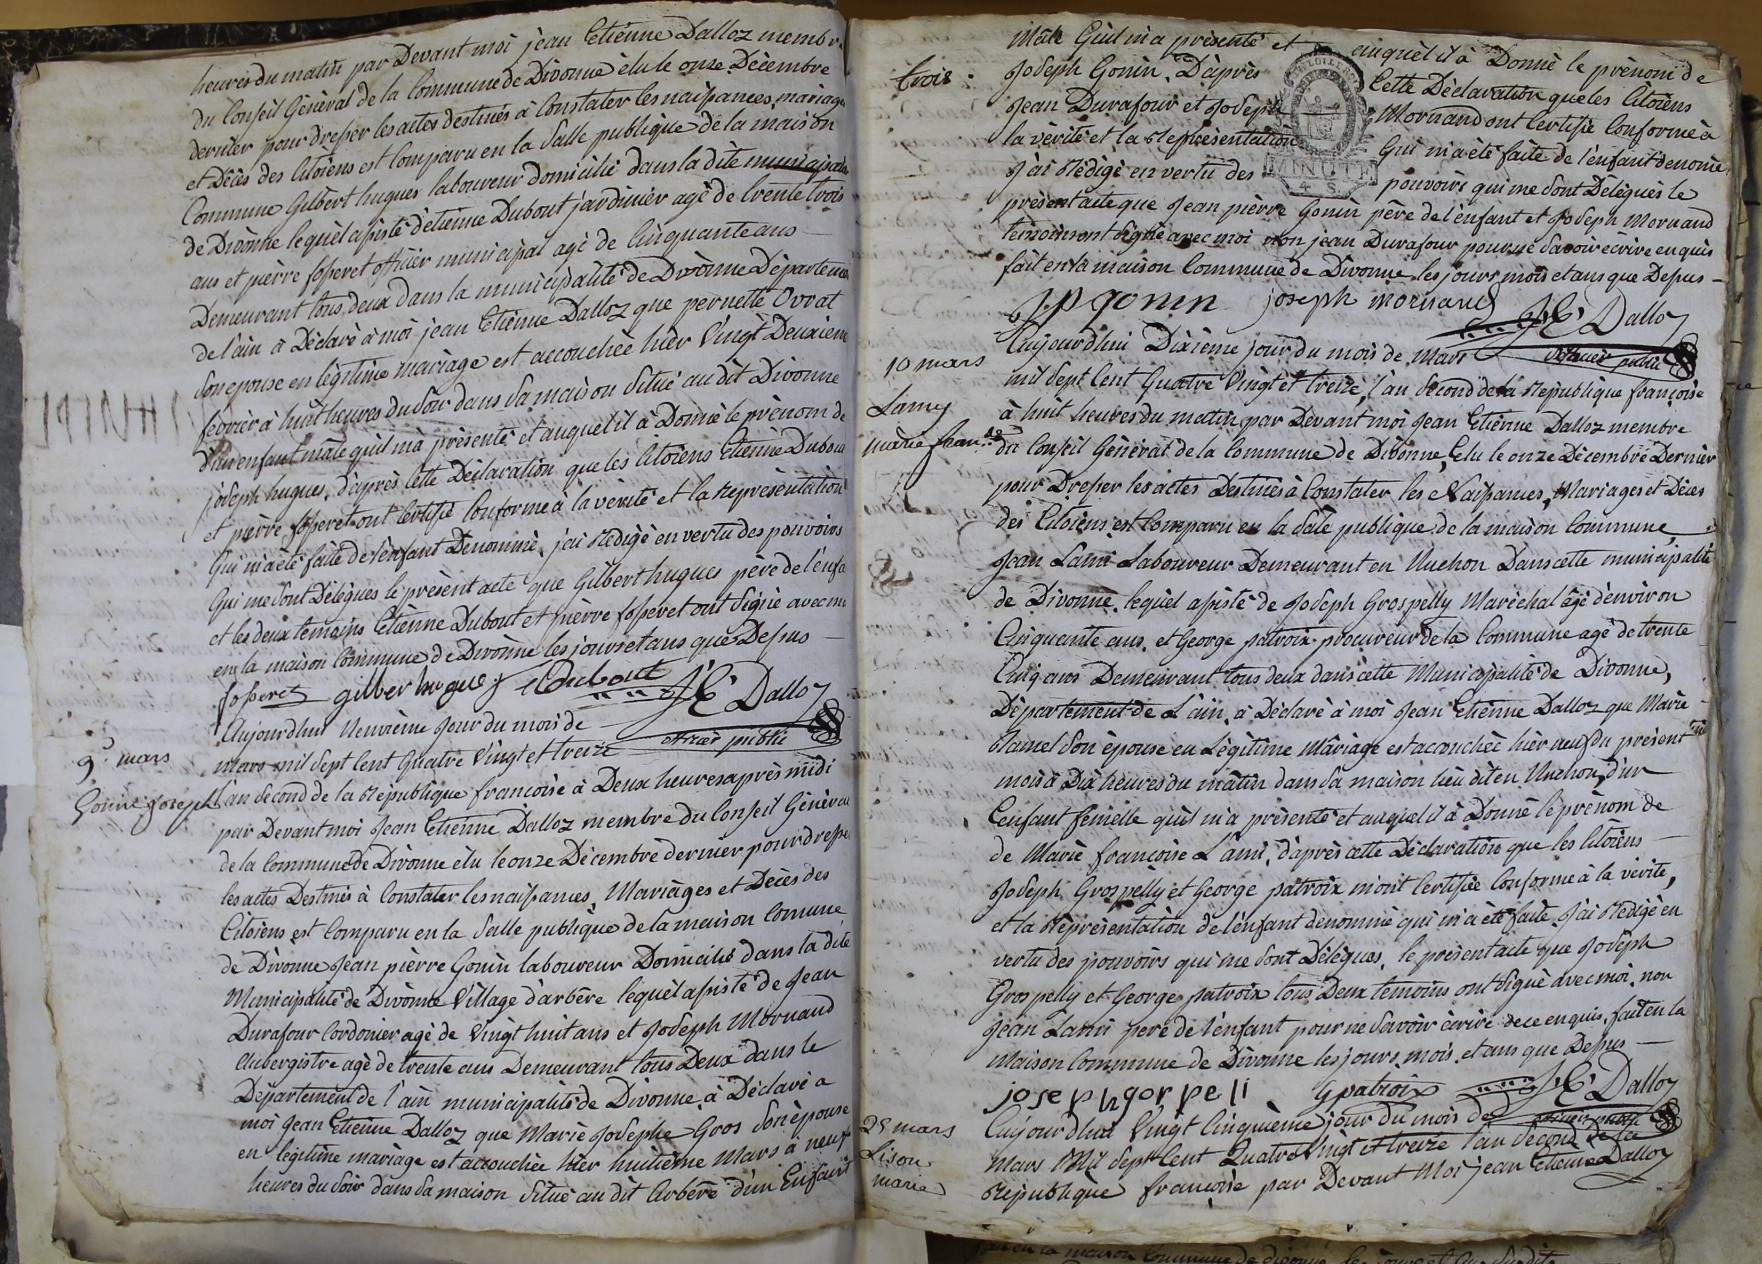 heures du matin par Devant moi jean Etiènne Dalloz membre
du Conseil Général de la Commune de Divonne élu le onze Décembre
dernier pour dresser les actes destinés à Constater les naissances, mariages
et Décès des Citoiens est Comparu en la Salle publique de la maison
Commune Gilbert hugues laboureur domicilié dans la dite municipalité
de Divonne lequèl assisté d'etiènne Dubout jardinier agé de trente trois
ans et pièrre fosseret officier municipal agé de Cinquante ans
Demeurant tous deux dans la municipalité de Divonne Département
de l'ain à Déclaré à moi jean Etiènne Dalloz que pernette Ovrat
Son epouse en légitime mariage est accouchée hier Vingt Deuxieme
fevrièr à huit heures du Soir dans Sa maison Situé au dit Divonne
d'un enfant mâle qu'il m'à présenté et auquel il à Donné le prènom de
joseph hugues, d'après Cette Déclaration que les Citoiens Etiènne Dubout
et pièrre fosseret ont Certifié Conforme à la vérité et la Représentation
Qui m'a été faite de l'enfant Dénommé, j'ai Rédigé en vertu des pouvoirs
Qui me Sont Délégués le présent acte que Gilbert hugues père de l'enfa
et les deux temoins Etiènne Dubout et pierre fosseret ont Signé avec moi
en la maison Commune de Divonne les jours et ans que Dessus
fosseret gilber hugues e Dubout J E Dalloz
officier public
9 mars
Gonin joseph
Aujourdhui Neuvième jour du mois de
mars mil Sept Cent Quatre Vingt et treize
l'an Second de la République françoise à Deux heures après midi
par Devant moi Jean Etiénne Dalloz membre du Conseil Général
de la Commune de Divonne élu le onze Décembre dernier pour dresser
les actes Destinés à Constater les naissances, Mariages et Décès des
Citoiens est Comparu en la Salle publique de la maison Comune
de Divonne Jean pièrre Gonin laboureur Domicilié dans la dite
Municipalité de Divonne Village d'arbère lequèl assisté de Jean
Durafour Cordonier agé de Vingt huit ans et Joseph Mornand
Aubergiste agé de trente ans Demeurant tous Deux dans le
Département de l'ain municipalité de Divonne, à Déclaré a
moi Jean Etiènne Dalloz que Marie Josephe Gros Son épouse
en légitime mariage est accouchée hier huitième Mars à neuf
heures du Soir dans Sa maison Situé au dit Arbère d'un Enfant
trois
Mâle Qu'il m'a présenté et auquel il à Donné le prènom de
Joseph Gonin. D'après Cette Déclaration que les Citoiens
Jean Durafour et Joseph Mornand ont Certifié Conforme à
la vérité et la Représentation Qui m'a été faite de l'enfant denomé
J'ai Rédigé en vertu des pouvoirs qui me Sont Délégués le
présent acte que Jean pièrre Gonin père de l'enfant et Joseph Mornand
temoin ont Signé avec moi non jean Durafour pour ne Savoir écrire enquis
fait en la maison Commune de Divonne les jours mois et ans que Dessus
MINUTE
4 S.
j p gonin joseph mornand J E Dalloz
officier public
10 mars
Lamy
marie fran.se
Aujourdhui Dixième jour du mois de Mars
mil Sept Cent Quatre Vingt et treize, l'an Second de la République françoise
à huit heures du matin par Devant moi Jean Etiènne Dalloz membre
du Conseil Général de la Commune de Divonne, élu le onze Décembre Dernier
pour Dresser les actes Destinés à Constater les Naissances, Mariages et Décès
des Citoiens est Comparu en la Salle publique de la maison Commune
Jean Lami Laboureur Demeurant en Vuchon Dans cette municipalité
de Divonne. lequèl assisté de Joseph Grospelly Maréchal agé d'environ
Cinquante ans, et George patroix procureur de la Commune agé de trente
Cinq ans Demeurant tous deux dans cette Municipalité de Divonne,
Département de L'ain, à Déclaré à moi Jean Etiènne Dalloz que Marie
Son épouse en Légitime Mâriage est accouchée hièr neuf du présent
mois à Dix heures du mâtin dans Sa maison lieu dit en Vuchon, d'un
Enfant fémelle qu'il m'a présenté et auquel il à Donné le prénom de
de Marie françoise Lami, d'après cette Déclaration que les Citoiens
Joseph Grospelly et George patroix m'ont Certifiée Conforme à la vérité,
et la Réprésentation de l'enfant denommé qui m'a été faite, J'ai Rédigé en
vertu des pouvoirs qui me Sont Délégués, le présent acte que Joseph
Grospelly et George patroix tous Deux temoins ont Signé avec moi, non
Jean Lami pere de l'énfant pour ne Savoir écrire de ce enquis, fait en la
Maison Commune de Divonne les jours, mois et ans que Dessus
joseph gorpeli G patroix J E Dalloz
officier public
25 mars
Lison
marie
Aujourdhui Vingt Cinquième jour du mois de
Mars Mil Sept Cent Quatre Vingt et treize l'an Second de la
République françoise par Devant Moi jean Etienne Dalloz